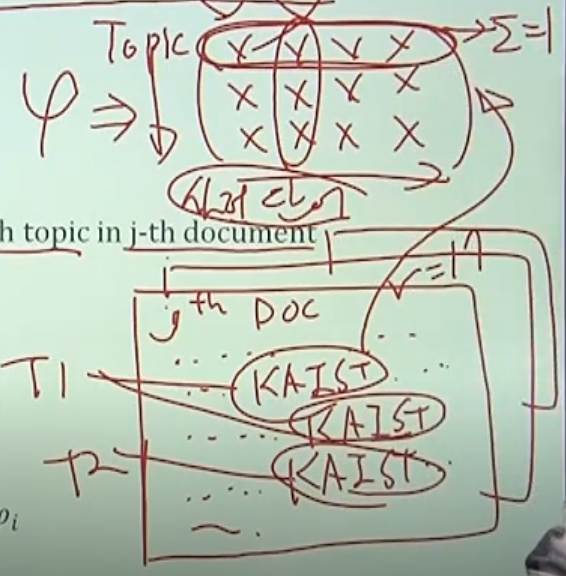 Topic x v v x → Σ=1
φ ⇒ x x v x
x x x x
h topic in j-th document
r=17
jth DOC
T1 KAIST
KAIST
T2 KAIST